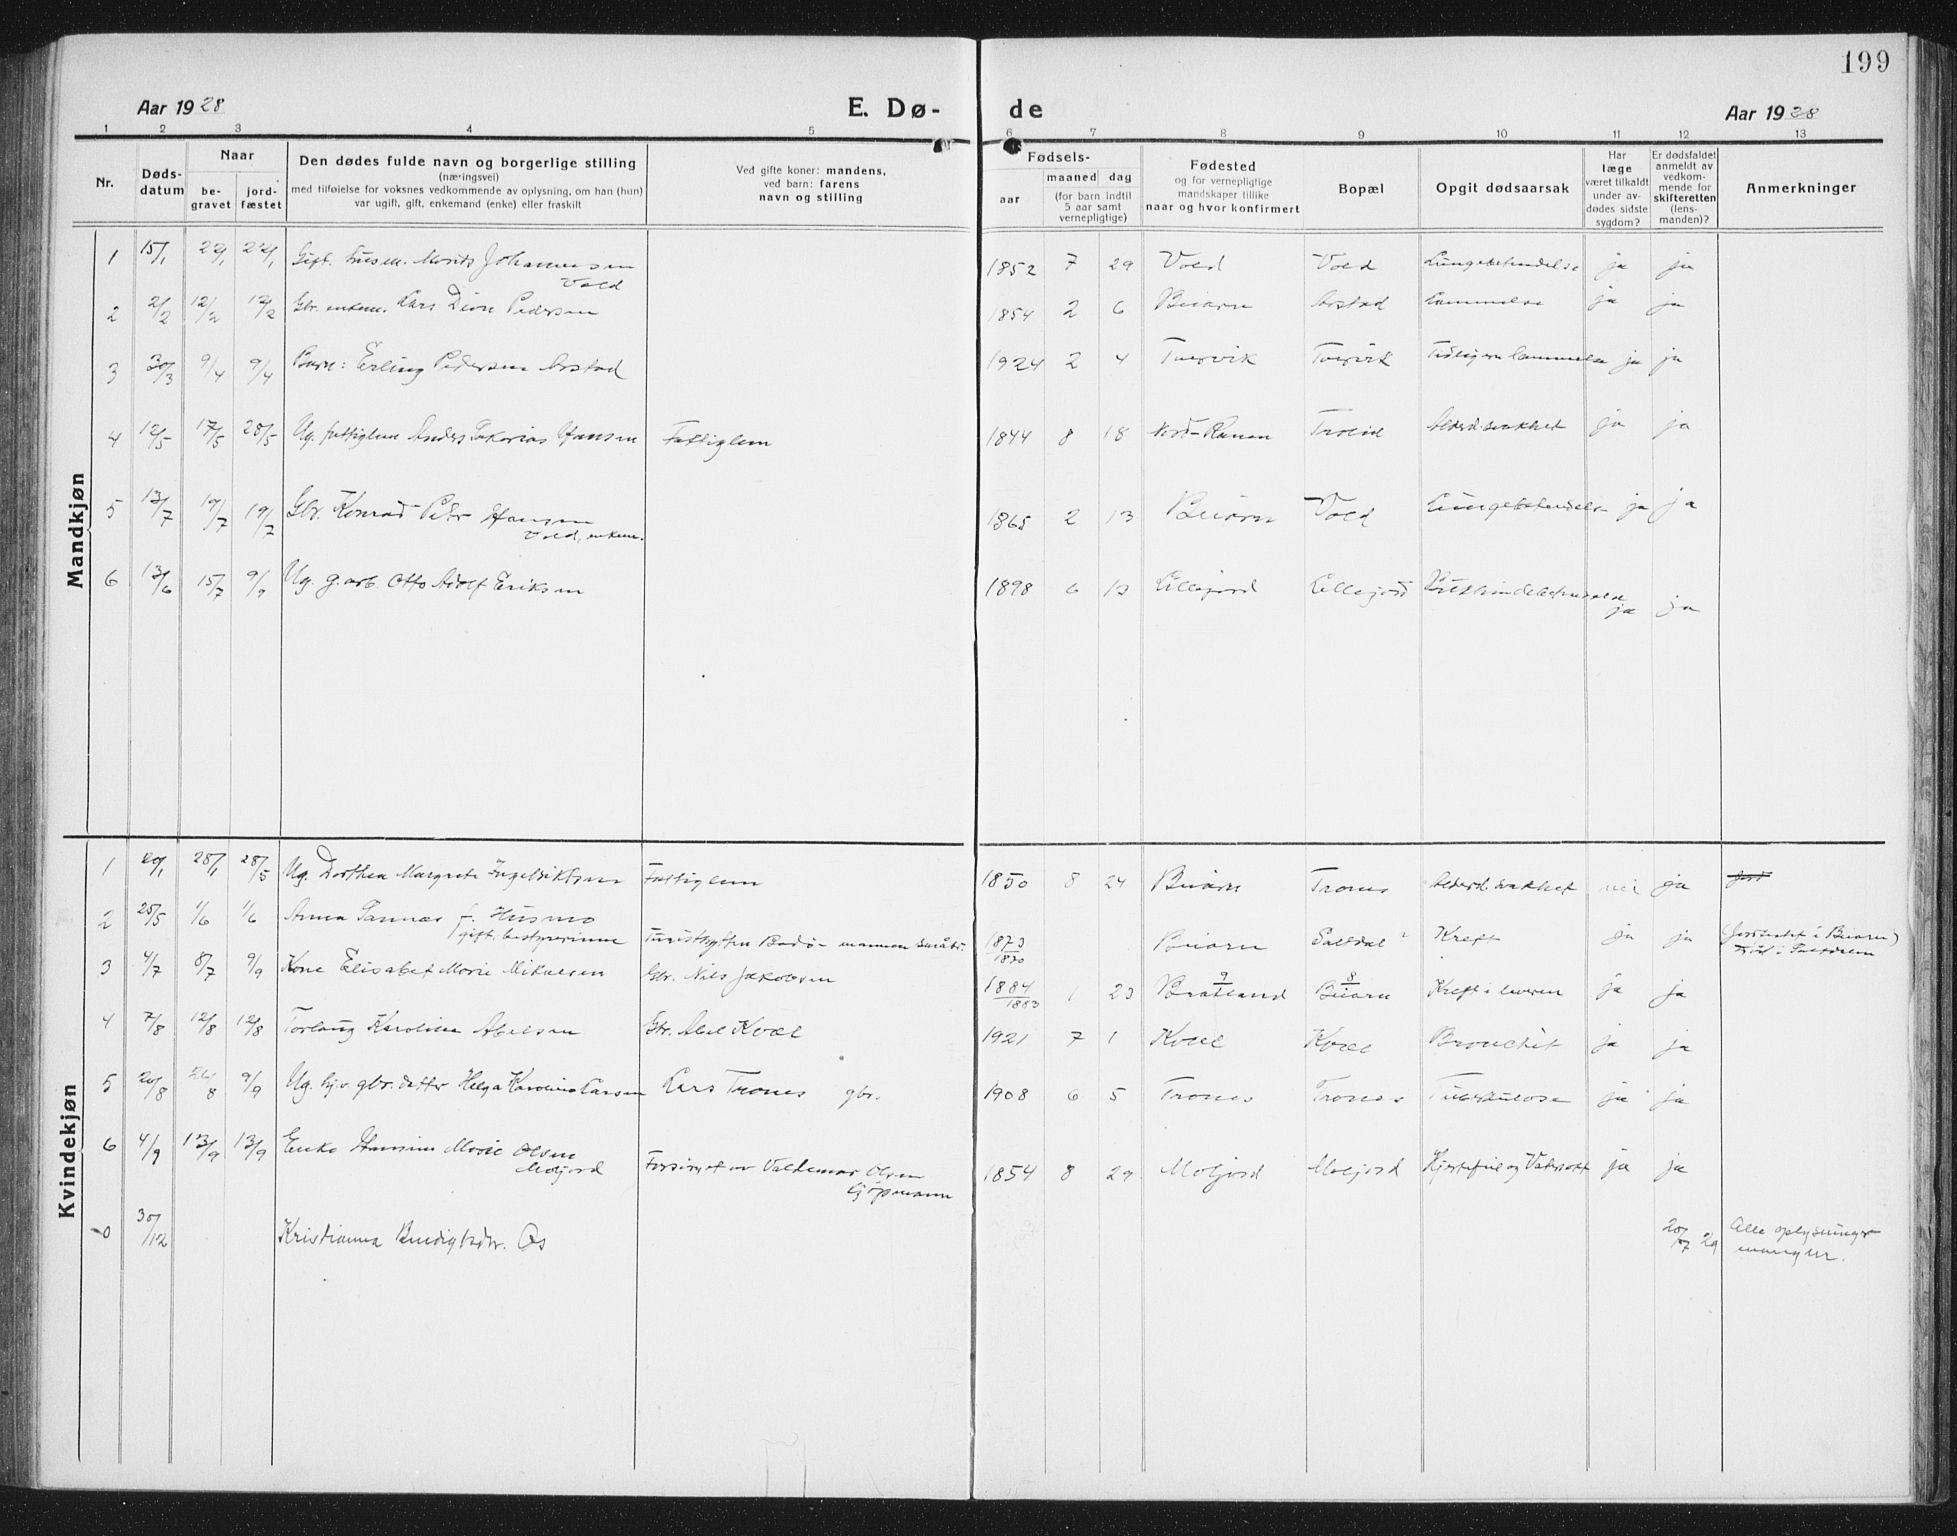 199
Aar 1928
E. Dø-
de
Aar 1928
1 2 3 4 5 6 7 8 9 10 11 12 13
Nr.
Døds-
datum
Naar
be-
gravet
jord-
fæstet
Den dødes fulde navn og borgerlige stilling
(næringsvei)
med tilføielse for voksnes vedkommende av oplysning, om han (hun)
var ugift, gift, enkemand (enke) eller fraskilt
Ved gifte koner: mandens,
ved barn: farens
navn og stilling
Fødsels-
aar
maaned dag
(for barn indtil
5 aar samt
vernepligtige)
Fødested
og for vernepligtige
mandskaper tillike
naar og hvor konfirmert
Bopæl
Opgit dødsaarsak
Har
læge
været tilkaldt
under av-
dødes sidste
sygdom?
Er dødsfaldet
anmeldt av
vedkom-
mende for
skifteretten
(lens-
manden)?
Anmerkninger
Mandkjøn
1 15/1 22/1 22/1 Gift. husm. Morits Johannessen Vold 1852 7 29 Vold Vold Lungebetendelse ja ja
2 2/2 12/2 12/2 Gbr. enkem. Lars Pedersen 1854 2 6 Beiarn Arstad Lammelse ja ja
3 30/3 9/4 9/4 Barn: Erling Pedersen Arstad 1924 2 4 Tvervik Tvervik lammelse ja ja
4 12/5 17/5 28/5 Ug. fattiglem Anders Sakarias Hansen Fattiglem 1844 8 18 Nord-Ranen Alderdsvakhet ja ja
5 13/7 19/7 19/7 Gbr. Konrad Peder Hansen
Vold, enkem. 1865 2 13 Beiarn Vold Lungebetendelse ja ja
6 13/6 15/7 9/9 Ug. g.arb. Otto Adolf Eriksen 1898 6 13 Lillejord Lillejord ja ja
Kvindekjøn
1 20/1 28/1 28/5 Ug. Dorthea Margrete Ingebriktsen Fattiglem 1850 8 24 Beiarn Trones Alderdsvakhet nei ja
2 25/5 1/6 1/6 Anna f. Husmo
gift, bestyrerinne Bodø - mannen 1873
1870 Beiarn Saltdal? Kreft ja ja
3 4/7 8/7 9/9 Kone Elisabet Marie Mikalsen Gbr. Nils Jakobsen 1884
1883 1 23 Bratland 9 Beiarn 8 Kreft i leveren ja ja
4 7/8 12/8 12/8 Torlaug Karoline Abelsen Gbr. Abel Kvæl 1921 7 1 Kvæl Kvæl Bronchit ja ja
5 20/8 26/8 9/9 Ug. hj.v. gbr. datter Helga Karoline Larsen Lars Trones gbr. 1908 6 5 Trones Trones Tuberkulose ja ja
6 4/9 13/9 13/9 Enke Marie Olsen
Moljord Forsørget av Valdemar Olsen
Kjøpmann 1854 8 29 Moljord Moljord Hjertefeil og Vatersott ja ja
0 30/12 Kristianna Os 20/7 29 Alle oplysninger
mangler.